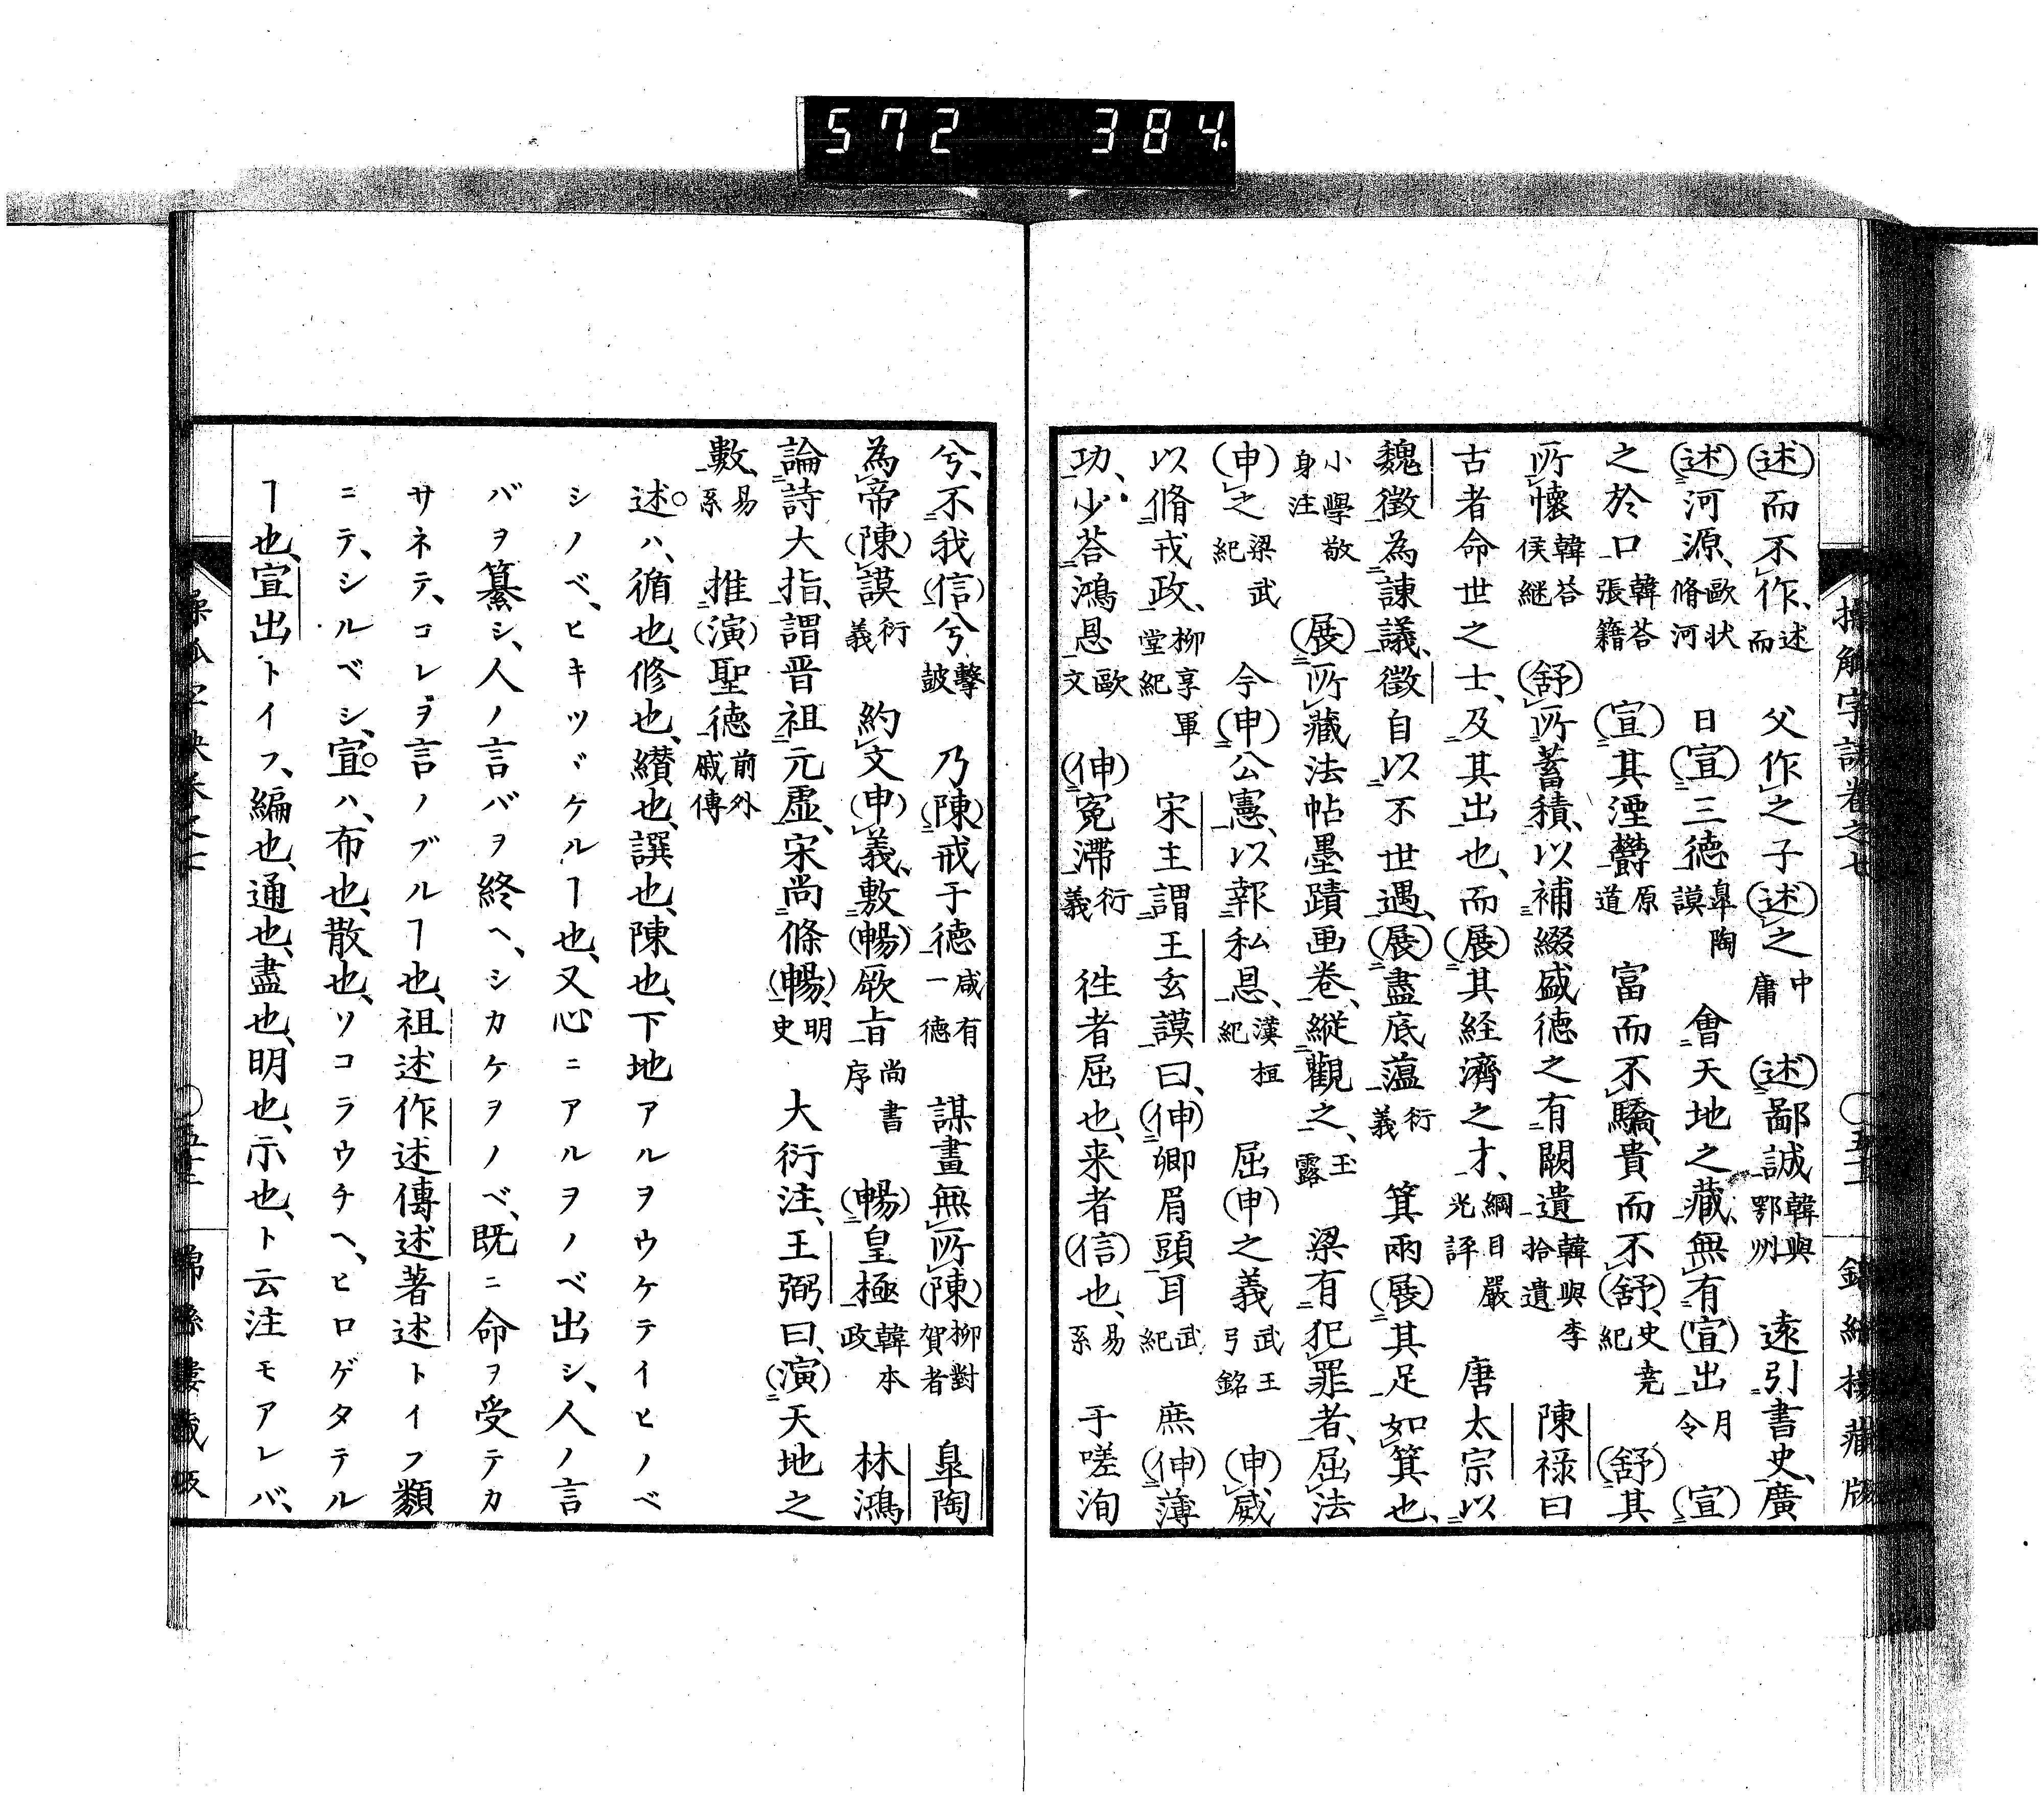 572 384.
操觚字訣卷之七 〇五十一 錦絲樓藏版
(述)而不作、述而 父作之子(述)之中庸 (述)鄙誠韓與鄂州 遠引書史、廣
(述)河源、歐状脩河 日(宣)三徳皐陶謨 會天地之藏、無有(宣)出月令 (宣)
之於口韓荅張籍 (宣)其湮欝原道 富而不驕、貴而不(舒)、史堯紀 (舒)其
所懐韓荅侯継 (舒)所蓄積、以補綴盛徳之有闕遺韓與李拾遺 陳禄曰
古者命世之士、及其出也、而(展)其経濟之才、綱目嚴光評 唐太宗以
魏徴為諌議、徴自以不世遇、(展)盡底蘊衍義 箕兩(展)其足如箕也、
小學敬身注 (展)所藏法帖墨蹟画巻、縦觀之、玉露 梁有犯罪者、屈法
(申)之梁武紀 今(申)公憲、以報私恩、漢桓紀 屈(申)之義武王弓銘 (申)威
以脩戎政、柳享軍堂紀 宋主謂王玄謨曰、(伸)卿眉頭耳武紀 庶(伸)薄
功、少荅鴻恩歐文 (伸)冤滞衍義 徃者屈也、来者(信)也、易系 于嗟洵
兮、不我(信)兮擊皷 乃(陳)戒于徳咸有一徳 謀畫無所(陳)柳對賀者 皐陶
為帝(陳)謨衍義 約文(申)義、敷(暢)厥旨尚書序 (暢)皇極韓本政 林鴻
論詩大指、謂晋祖元虚、宋尚條(暢)、明史 大衍注、王弼曰、(演)天地之
數、易系 推(演)聖徳前外戚傳
述ハ、循也、修也、纉也、譔也、陳也、下地アルヲウケテイヒノベ
シノベ、ヒキツヾケルヿ也、又心ニアルヲノベ出シ、人ノ言
バヲ纂シ、人ノ言バヲ終ヘ、シカケヲノベ、既ニ命ヲ受テカ
サネテ、コレヲ言ノブルヿ也、祖述作述傳述著述トイフ類
ニテ、シルベシ、宣ハ、布也、散也、ソコラウチヘ、ヒロゲタテル
ヿ也、宣出トイフ、編也、通也、盡也、明也、示也、ト云注モアレバ、
操觚字訣卷之七 錦絲樓藏版